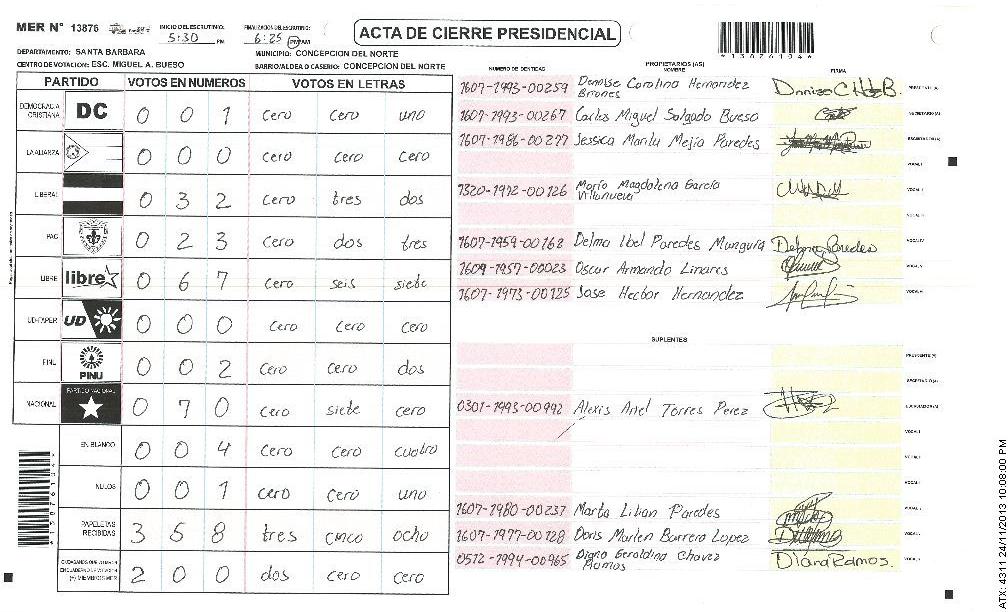 MER Nº 13876
INICIO DEL ESCRUTINIO: 5:30 PM
FINALIZACION DEL ESCRUTINIO: 6:25 PM AM
ACTA DE CIERRE PRESIDENCIAL
DEPARTAMENTO: SANTA BARBARA
MUNICIPIO: CONCEPCION DEL NORTE
CENTRO DE VOTACION: ESC. MIGUEL A. BUESO
BARRIO/ALDEA O CASERIO: CONCEPCION DEL NORTE
PARTIDO VOTOS EN NUMEROS VOTOS EN LETRAS
DEMOCRACIA CRISTIANA DC 0 0 1 Cero Cero uno
LA ALIANZA 0 0 0 cero cero cero
LIBERAL 0 3 2 Cero tres dos
PAC 0 2 3 cero dos tres
LIBRE libre 0 6 7 cero seis siete
UD-FAPER UD 0 0 0 Cero Cero cero
PINU PINU 0 0 2 cero cero dos
NACIONAL PARTIDO NACIONAL 0 7 0 cero siete cero
EN BLANCO 0 0 4 Cero Cero cuatro
NULOS 0 0 1 cero cero uno
PAPELETAS RECIBIDAS 3 5 8 tres cinco ocho
2 0 0 dos cero cero
NUMERO DE IDENTIDAD PROPIETARIOS (AS) NOMBRE FIRMA
1607-1993-00259 Dennise Carolina Hernandez Briones
1607-1993-00267 Carlos Miguel Salgado Bueso
1607-1986-00277 Jessica Marilu Mejia Paredes
1320-1972-00126 Mario Magdalena Garcia Villanueva
1607-1959-00162 Delma Ibel Paredes Munguia
1609-1957-00023 Oscar Armando Linares
1607-1973-00125 Jose Hector Hernandez
SUPLENTES
0301-1993-00992 Alexis Ariel Torres Perez
1607-1980-00237 Marta Lilian Paredes
1607-1977-00128 Doris Marlen Barrera Lopez
0512-1994-00965 Diana Geraldina Chavez Ramos Diana Ramos.
ATX: 4311 24/11/2013 10:08:00 PM